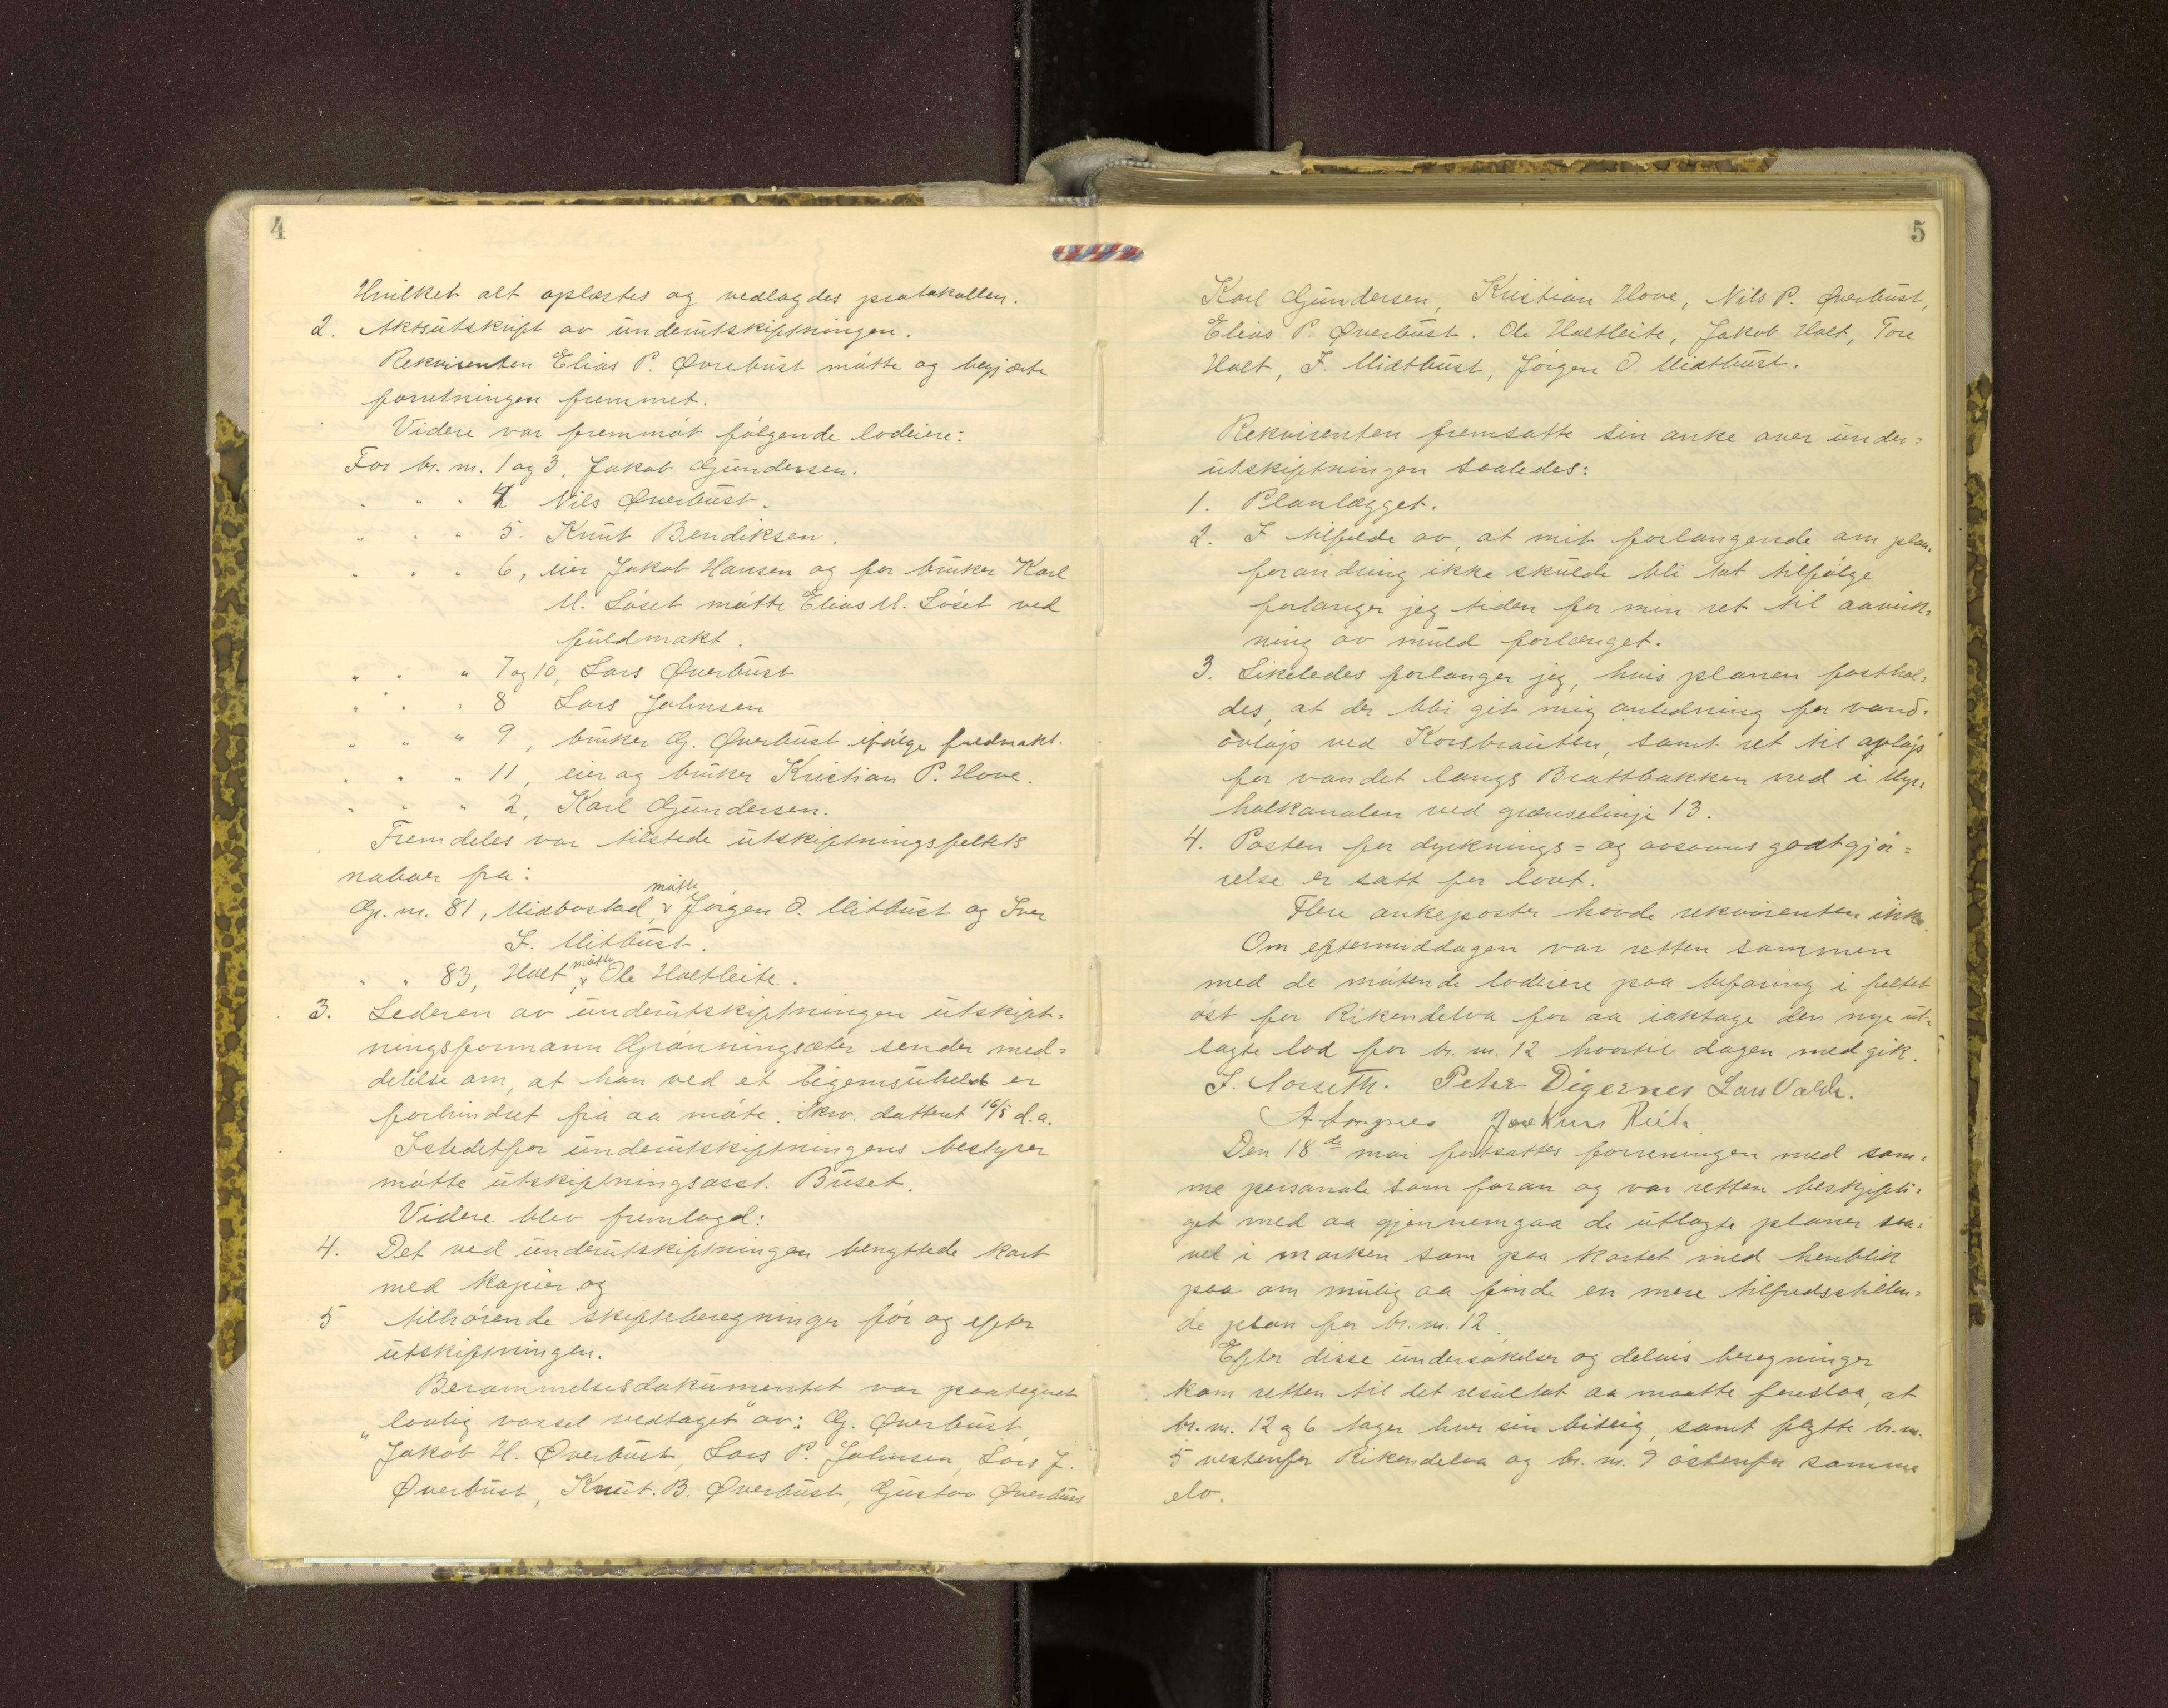 4
Hvilket alt oplæstes og vedlagdes protokollen.
2. Aktsutskript av underutskiftningen.
Rekvisenten Elias P. Øvrebust møtte og begjærte
forretningen fremmet.
Videre var fremmøt følgende lodeiere:
For br. nr. 1 og 3. Jakob Gundersen.
" " " 4 Nils Øverbust.
" " " 5. Knut Bendiksen.
" " " 6, eier Jakob Hansen og for bruker Karl
M. Løset møtte Elias M. Løset ved
fuldmakt.
" " " 7 og 10, Lars Øverbust
" " " 8 Lars Johnsen
" " " 9, bruker G. Øverbust ifølge fuldmakt.
" " " 11, eier og bruker Kristian P. Hove.
" " " 2, Karl Gundersen.
Fremdeles var tilstede utskiftningsfeltets
naboer fra:
Gr. nr. 81, Midbostad, møtte Jørgen O. Mitbust og Iver
I. Mitbust.
" " 83, Holt, møtte Ole Holtleite.
3. Lederen av underutskiftningen utskift-
ningsformann Grønningsæter sender med-
delelse om, at han ved et legemsuheld er
forhindret fra aa møte. Skr. dattert 16/5 d.a.
Istedetfor underutskiftningens bestyrer
møtte utskiftningsasst. Buset.
Videre blev fremlagd:
4. Det ved underutskiftningen benyttede kart
med kopier og
5 tilhørende skifteberegninger før og efter
utskiftningen.
Berammelsesdokumentet var paategnet
"lovlig varsel vedtaget" av: G. Øverbust,
Jakob H. Øverbust, Lars P. Johnsen, Lars J.
Øverbust, Knut. B. Øverbust, Gustav Øverbust
5
Karl Gundersen, Kristian Hove, Nils P. Øverbust,
Elias P. Øverbust. Ole Holtleite, Jakob Holt, Tore
Holt, I. Midtbust, Jørgen O. Midtbust.
Rekvisenten fremsatte sin anke over under=
utskiftningen saaledes:
1. Planlægget.
2. I tilfelde av, at mit forlangende om plan-
forandring ikke skulde bli tat tilfølge
forlanger jeg tiden for min ret til aavirk-
ning av muld forlænget.
3. Likeledes forlanger jeg, hvis planen fasthol-
des, at der bli git mig anledning for vand-
avløp ved Korsbrauten, samt ret til avløp
for vandet langs Brattbakken ned i Myr-
holkanalen ved grænselinje 13.
4. Posten for dyrknings= og avsavns godtgjø=
relse er satt for lavt.
Flere ankeposter havde rekvirenten ikke.
Om eftermiddagen var retten sammen
med de møtende lodeiere paa befaring i feltet
øst for Rikendelva for aa iaktage den nye ut-
lagte lod for br. nr. 12 hvortil dagen medgik.
I. Norseth. Peter Digernes Lars Valde.
A Longnes
Den 18de mai fortsattes forreningen med sam-
me personale som foran og var retten beskjefti-
get med aa gjennemgaa de utlagte planer saa-
vel i marken som paa kartet med henblik
paa om mulig aa finde en mere tilfredsstillen-
de plan for br. nr. 12.
Efter disse undersøkelser og delvis beregninger
kom retten til det resultat aa maatte foreslaa, at
br. nr. 12 og 6 tager hver sin biteig, samt flytte br. nr.
5 vestenfor Rikendelva og br. nr. 9 østenfor samme
elv.